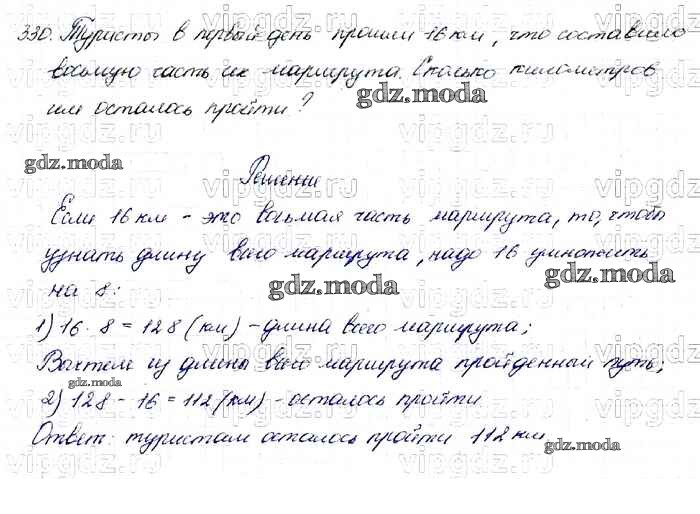 330. Туристы в первый день прошли 16 км, что составило
восьмую часть их маршрута. Сколько километров
им осталось пройти?
gdz.moda
gdz.moda
Решение
Если 16 км - это восьмая часть маршрута, то, чтобы
узнать длину всего маршрута, надо 16 умножить
gdz.moda
на 8:
gdz.moda
1) 16 · 8 = 128 (км) - длина всего маршрута;
Вычтем из длины всего маршрута пройденный путь;
gdz.moda
2) 128 - 16 = 112 (км) - осталось пройти.
Ответ: туристам осталось пройти 112 км.
gdz.moda
vipgdz.ru